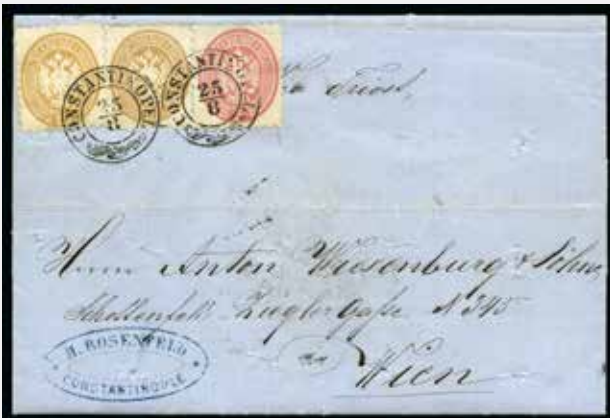 CONSTANTINOPEL
25
8
CONSTANTINOPEL
25
8
Triest,
Herrn Anton Wiesenburg & Söhne
Schottenfeld Zieglergasse N 345
Wien
H. ROSENFELD
CONSTANTINOPLE